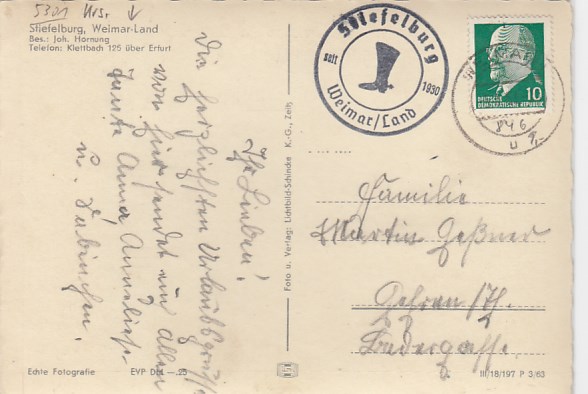 5301 Krs.
Stiefelburg, Weimar-Land
Bes.: Joh. Hornung
Telefon: Klettbach 125 über Erfurt
Stiefelburg
seit 1930
Weimar/Land
WEIMAR
DEUTSCHE
DEMOKRATISCHE REPUBLIK
10
u
Ihr Lieben!
Die herzlichsten Urlaubsgrüße
von hier sendet euch allen
Tante Anna, Annelies
u. Sabinchen.
Foto u. Verlag: Lichtbild-Schincke K.-G., Zeitz
Familie
Martin Geßner
Gehren/Th.
Echte Fotografie
EVP DM —.25
III/18/197 P 3/63